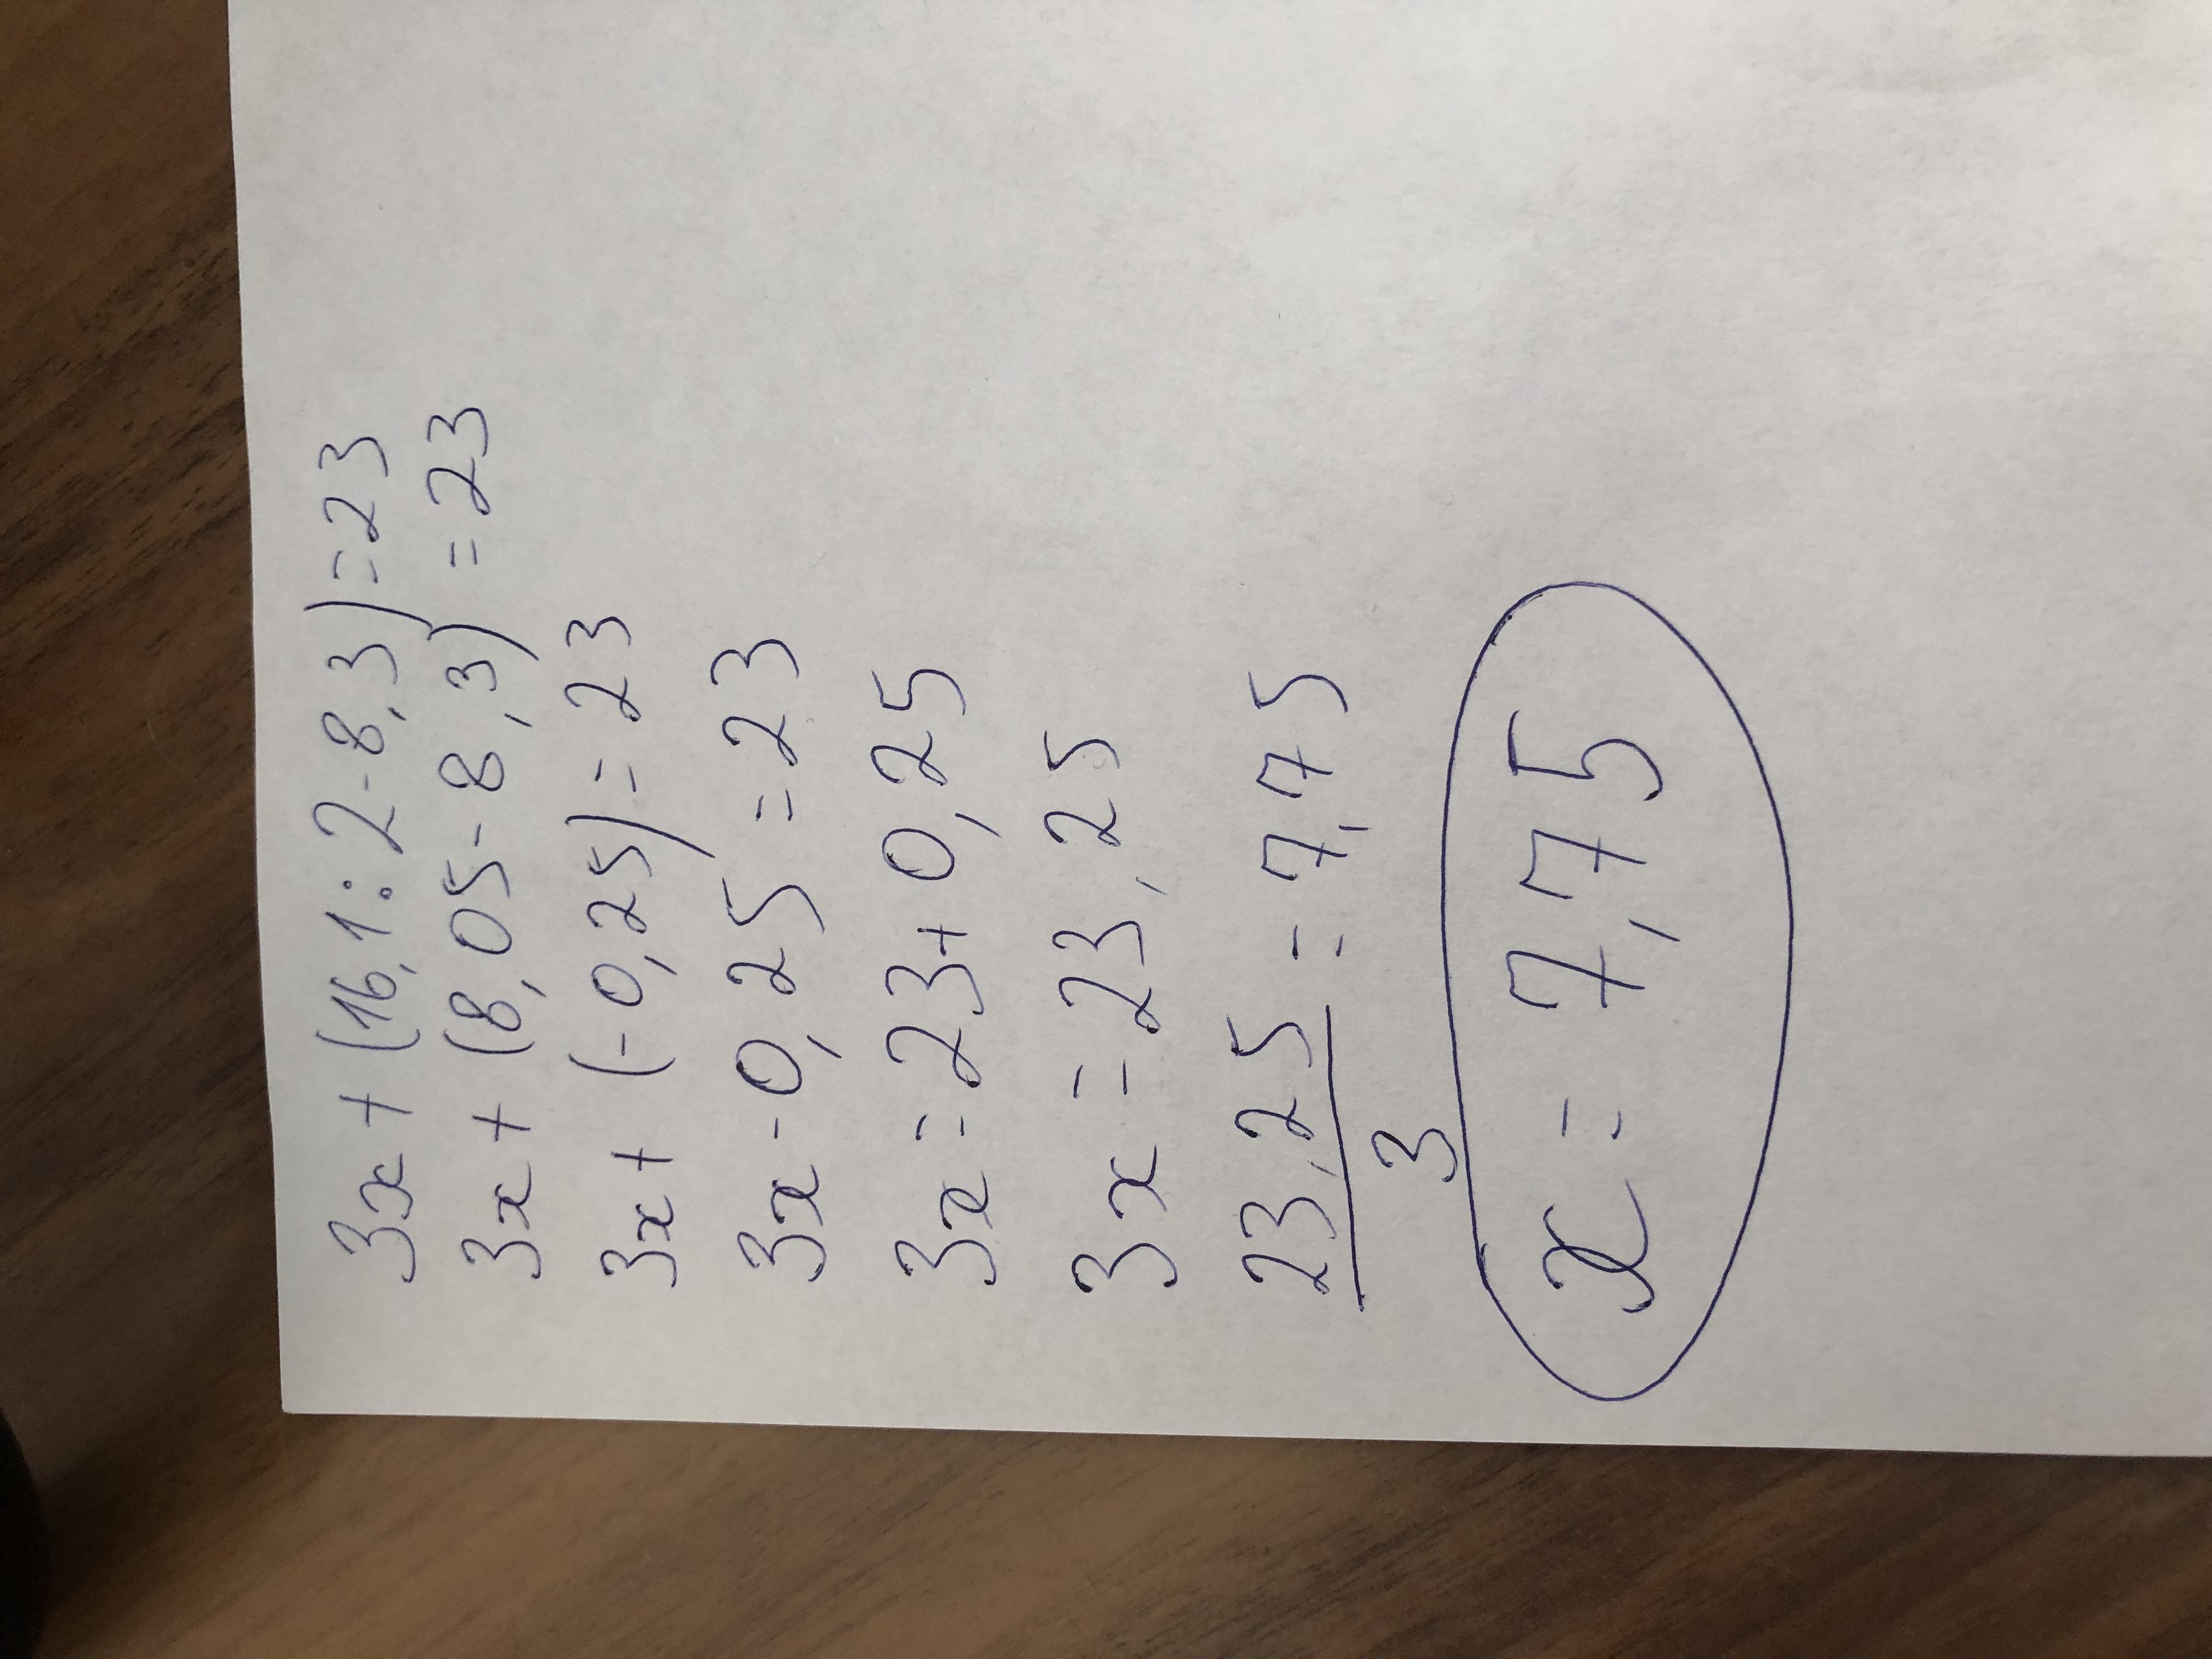 3x + (16,1 : 2 - 8,3) = 23
3x + (8,05 - 8,3) = 23
3x + (-0,25) = 23
3x - 0,25 = 23
3x = 23 + 0,25
3x = 23,25
23,25/3 = 7,75
x = 7,75